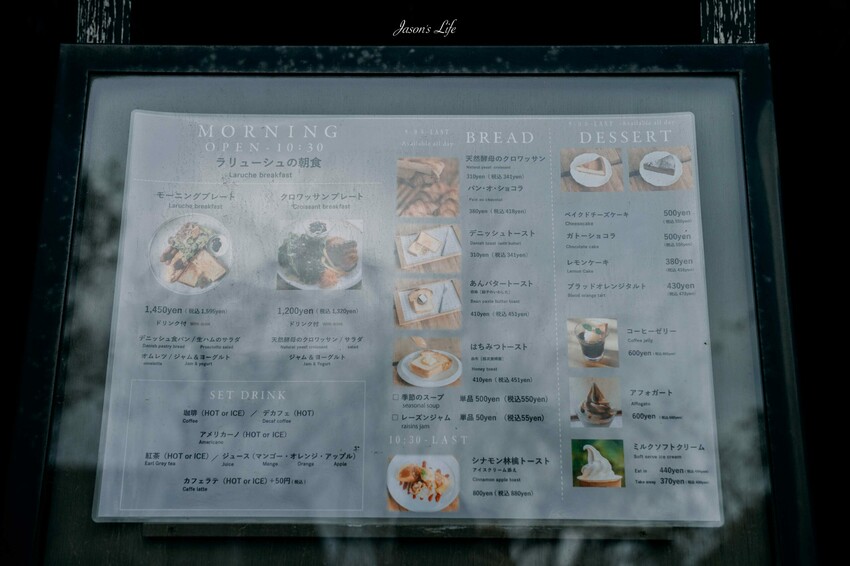 Jason's Life
MORNING
OPEN-10:30
ラリューシュの朝食
Laruche breakfast
モーニングプレート
Laruche breakfast
クロワッサンプレート
Croissant breakfast
1,450yen
1,200yen (税込 1,320yen)
ドリンク付 With drink
ドリンク付 With drink
デニッシュ食パン / 生ハムのサラダ
Danish pastry bread Prosciutto salad
オムレツ / ジャム&ヨーグルト
omelette Jam & yogurt
天然酵母のクロワッサン / サラダ
Natural yeast croissant salad
ジャム&ヨーグルト
Jam & Yogurt
SET DRINK
珈琲 (HOT or ICE) / デカフェ (HOT)
Coffee Decaf coffee
アメリカーノ (HOT or ICE)
Americano
紅茶 (HOT or ICE) / ジュース (マンゴー・オレンジ・アップル)
Earl Grey tea Juice Mango Orange Apple
カフェラテ (HOT or ICE) +50円 (税込)
Caffe latte
BREAD
天然酵母のクロワッサン
Natural yeast croissant
310yen (税込 341yen)
パン・オ・ショコラ
380yen (税込 418yen)
デニッシュトースト
310yen (税込 341yen)
あんバタートースト
410yen (税込 451yen)
はちみつトースト
Honey toast
410yen (税込 451yen)
□ 季節のスープ 単品 500yen (税込550yen)
seasonal soup
□ レーズンジャム 単品 50yen (税込55yen)
raisins jam
10:30-LAST
シナモン林檎トースト
アイスクリーム添え
Cinnamon apple toast
800yen (税込 880yen)
DESSERT
ベイクドチーズケーキ 500yen
Cheesecake
ガトーショコラ 500yen
Chocolate cake
レモンケーキ 380yen
Lemon Cake
ブラッドオレンジタルト 430yen
Blood orange tart
コーヒーゼリー
Coffee jelly
600yen
アフォガート
Affogato
600yen
ミルクソフトクリーム
Soft serve ice cream
Eat in 440yen
Take away 370yen